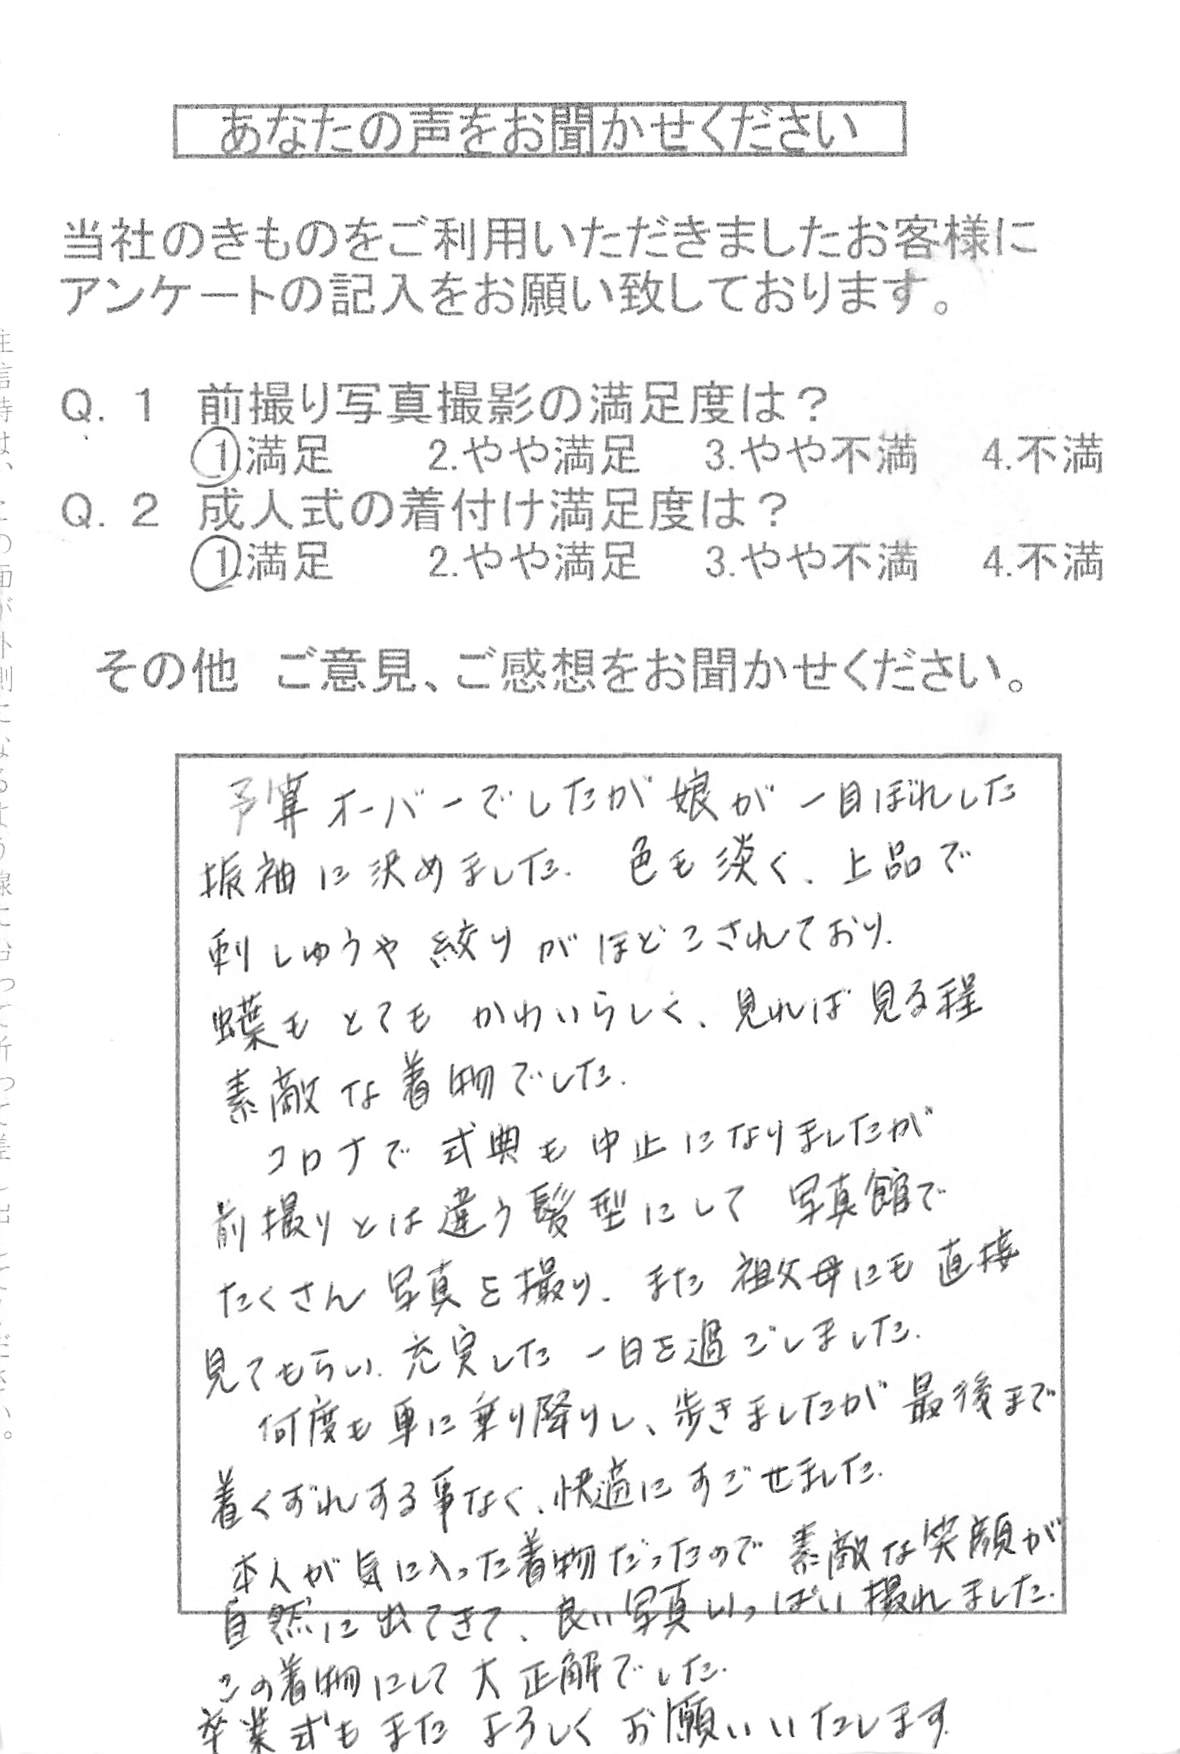 あなたの声をお聞かせください
当社のきものをご利用いただきましたお客様に
アンケートの記入をお願い致しております。
Q.1 前撮り写真撮影の満足度は？
1.満足 2.やや満足 3.やや不満 4.不満
Q.2 成人式の着付け満足度は？
1.満足 2.やや満足 3.やや不満 4.不満
その他 ご意見、ご感想をお聞かせください。
予算オーバーでしたが娘が一目ぼれした
振袖に決めました。色も淡く、上品で
刺しゅうや絞りがほどこされており、
蝶もとてもかわいらしく、見れば見る程
素敵な着物でした。
コロナで式典も中止になりましたが
前撮りとは違う髪型にして写真館で
たくさん写真を撮り、また祖父母にも直接
見てもらい、充実した一日を過ごしました。
何度も車に乗り降りし、歩きましたが最後まで
着くずれする事なく、快適にすごせました。
本人が気に入った着物だったので素敵な笑顔が
自然に出てきて、良い写真いっぱい撮れました。
この着物にして大正解でした。
卒業式もまたよろしくお願いいたします